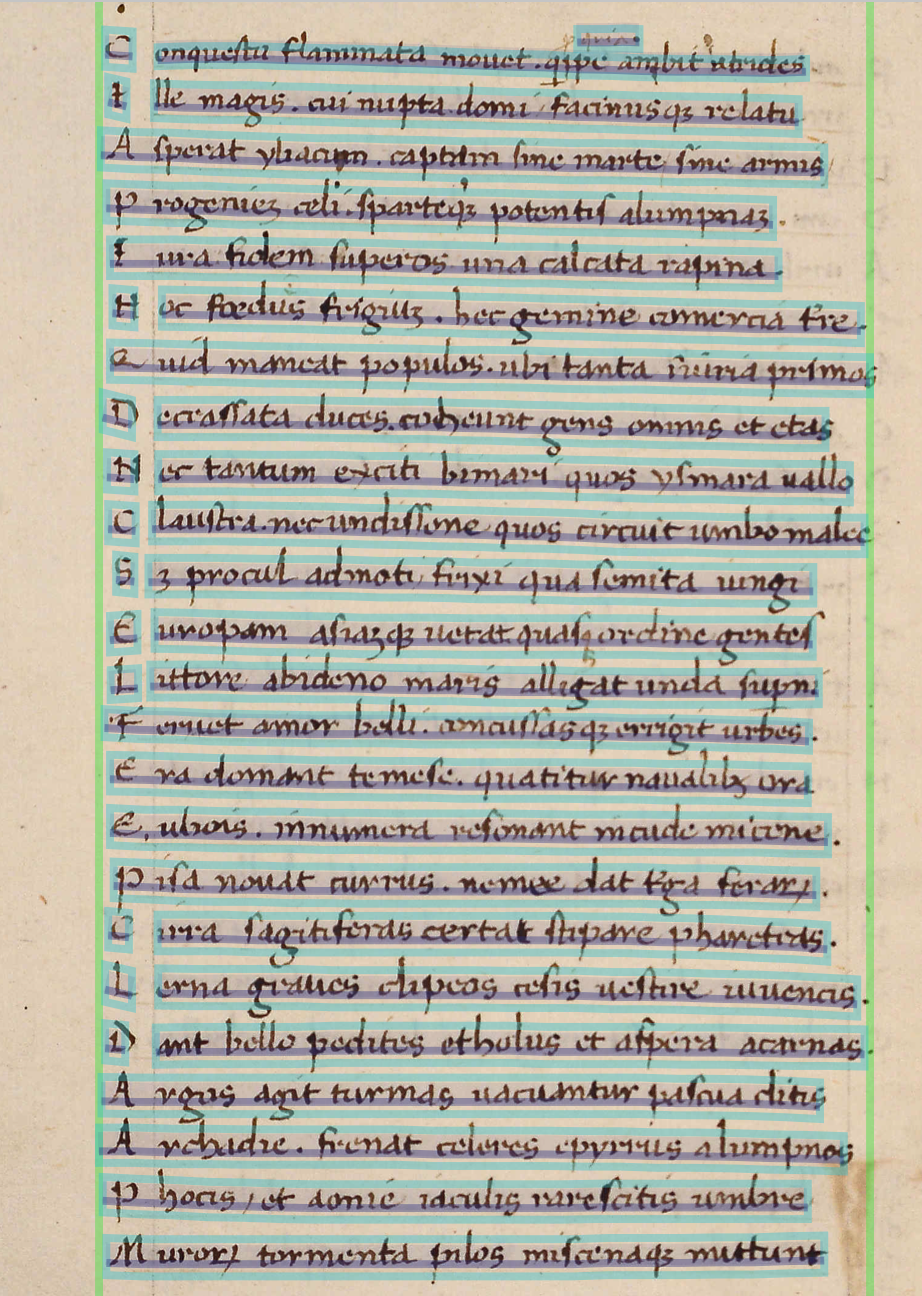 Conquestu flammata mouet. qipe ambit atrides
Ille magis. cui nupta domi facinusqꝫ relatu
Asperat yliacum. captam sine marte sine armis
Progenieꝫ celi. sparteqꝫ potentis alumpnaꝫ.
Iura fidem superos una calcata rapina.
Hoc foedus frigiuꝫ. hec gemine comercia tre.
Quid maneat populos. ubi tanta iniuria primos
Decrassata duces. coheunt gens omnis et etas
Nec tantum exciti bimari quos ysmara uallo
Claustra. nec undissone quos circuit umbo malee
Sꝫ procul admoti frixi qua semita iungi
Europam asiaꝫqꝫ uetat quasq ordine gentes
Littore abideno maris alligat unda supni
Feruet amor belli. concussasqꝫ errigit urbes.
Era domant temese. quatitur naualibꝫ ora
Eubois. innumera resonant incude micene.
Pisa nouat currus. nemee dat terga feraꝝ.
Cirra sagitiferas certat stipare pharetras.
Lerna graues clipeos cesis uestire iuuencis.
Dant bello pedites etholus et aspera acarnas.
Argus agit turmas uacuantur pascua ditis
Archadie. frenat celeres epyrrus alumpnos
Phocis, et aonie iaculis rarescitis umbre
Muroꝝ tormenta pilos miscenaqꝫ mittunt